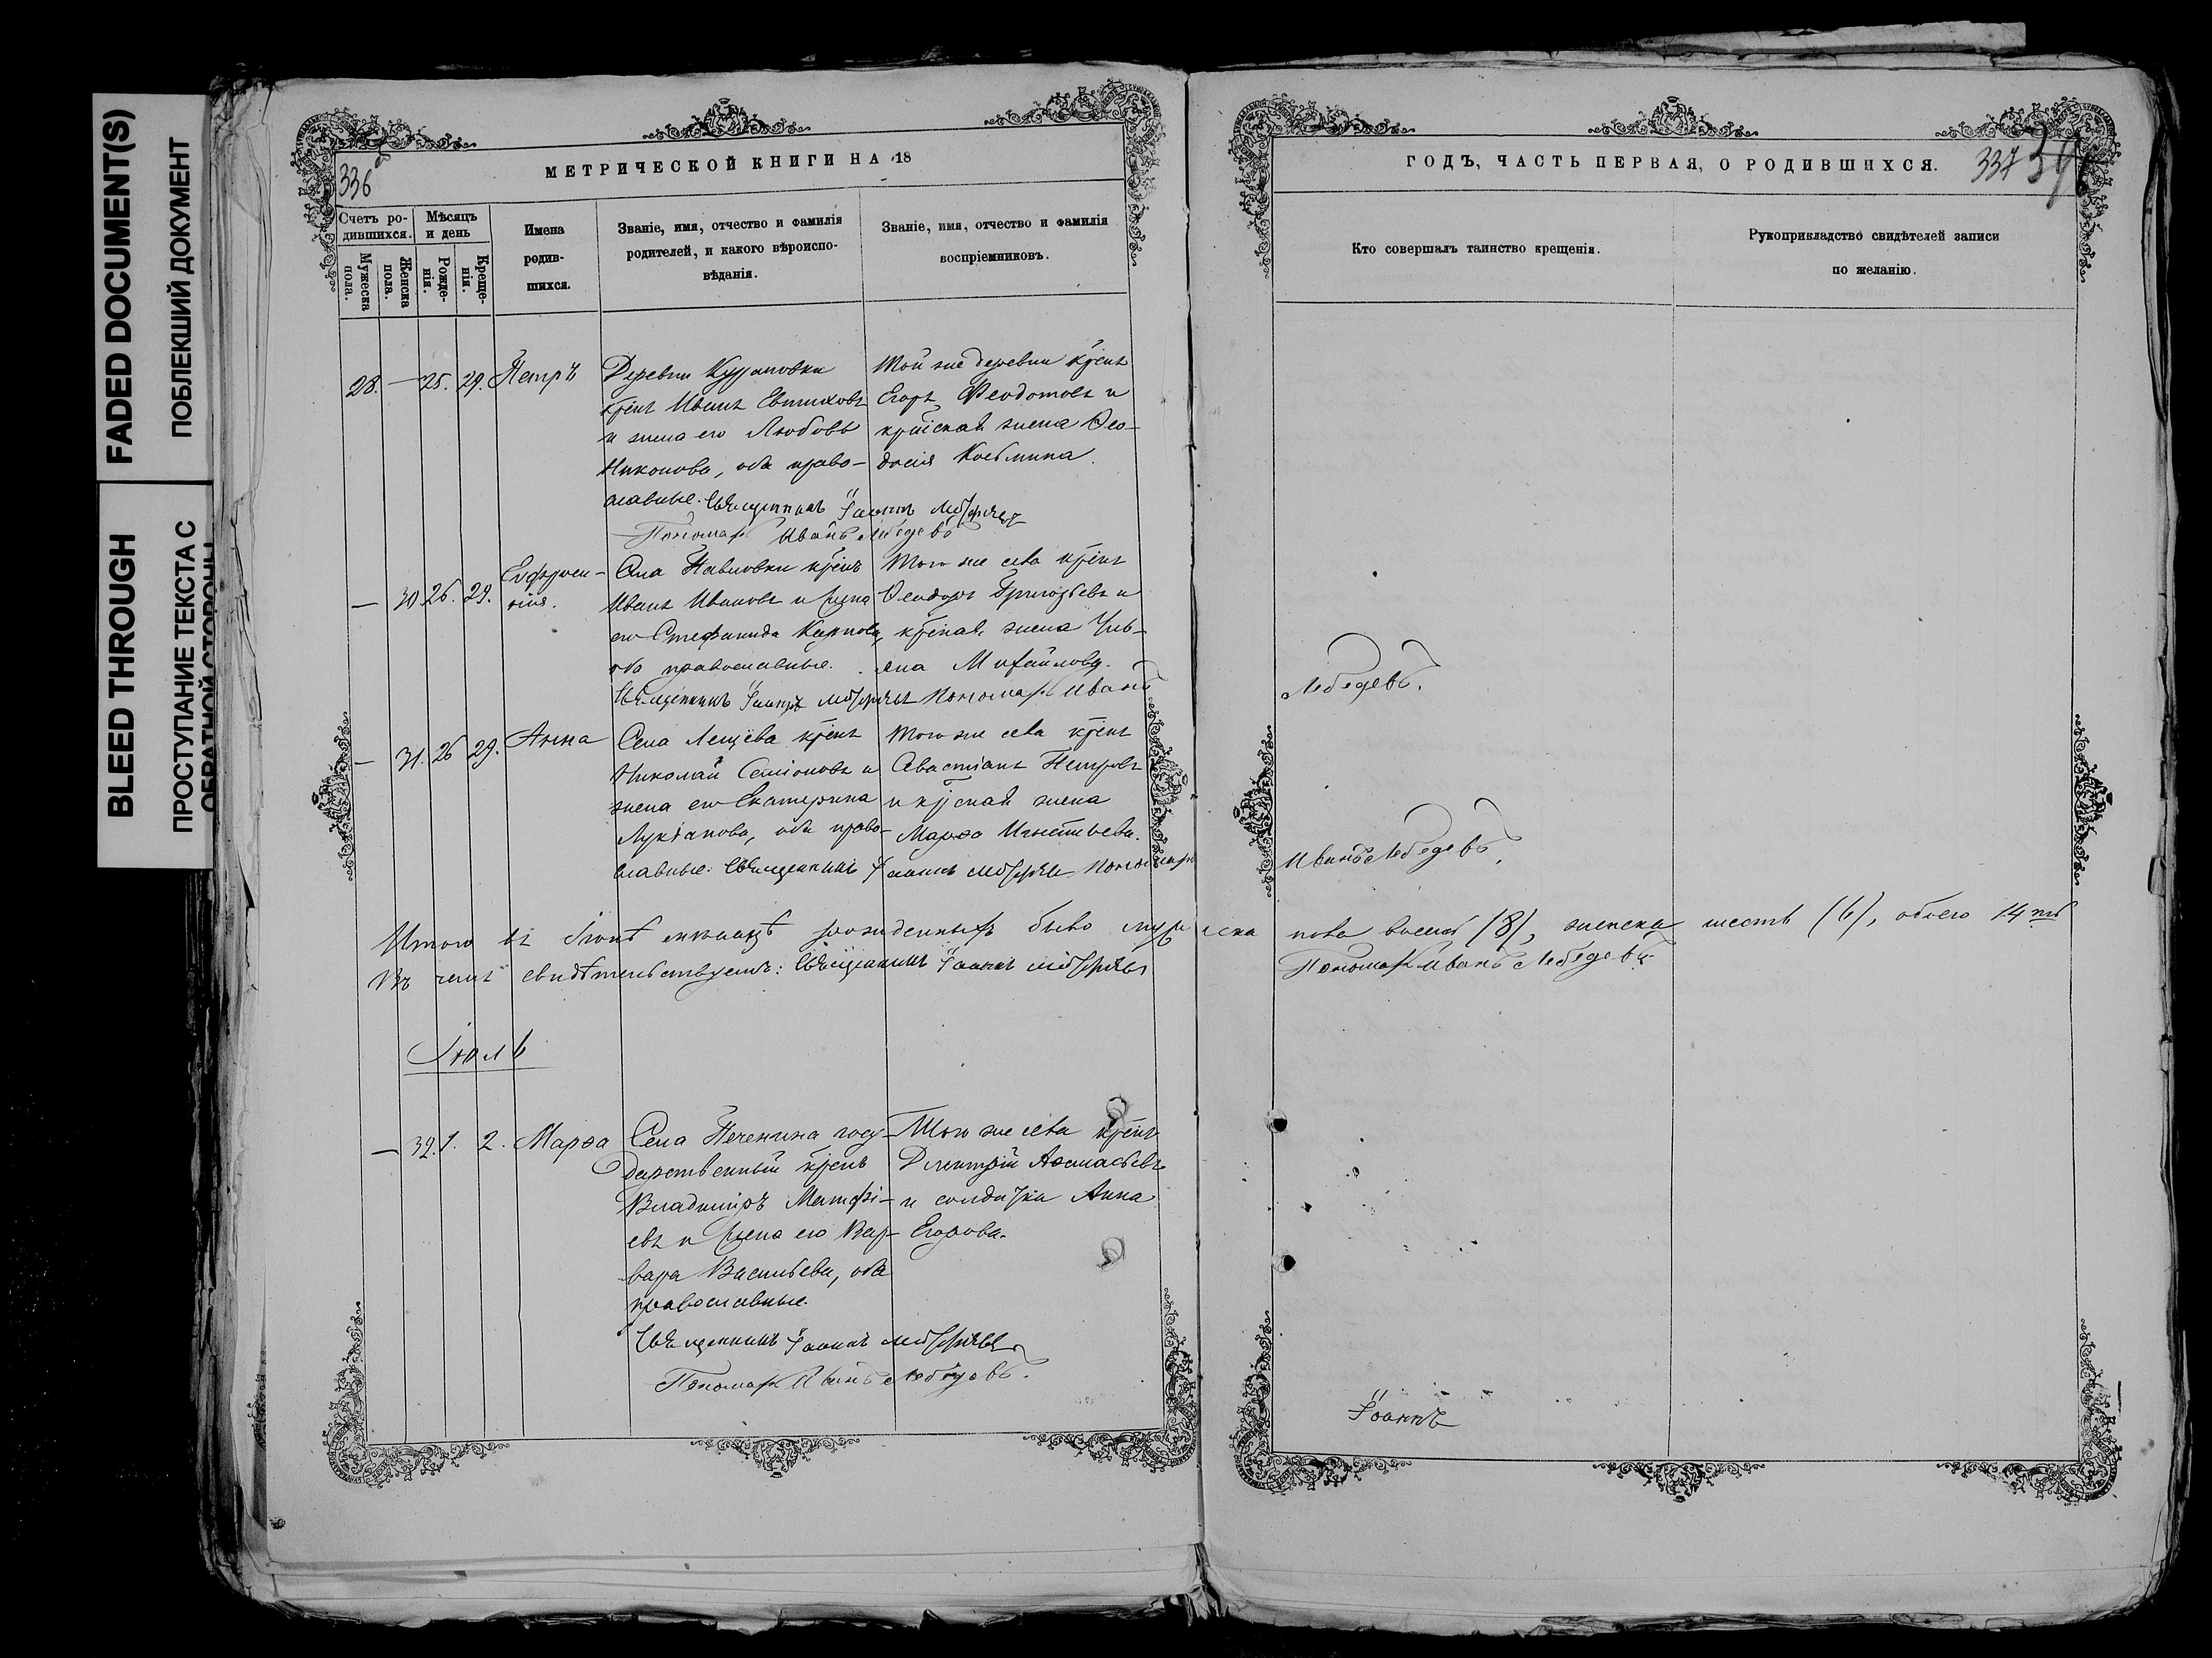 FADED DOCUMENT(S)
ПОБЛЕКШИЙ ДОКУМЕНТ
BLEED THROUGH
ПРОСТУПАНИЕ ТЕКСТА С
ОБРАТНОЙ СТОРОНЫ
336
МЕТРИЧЕСКОЙ КНИГИ НА 18
Счетъ ро-
дившихся.
Мѣсяцъ
и день
Мужеска
пола.
Женска
пола.
Рожде-
нія.
Креще-
нія.
Имена
родив-
шихся.
Званіе, имя, отчество и фамилія
родителей, и какого вѣроиспо-
вѣданія.
Званіе, имя, отчество и фамилія
воспріемниковъ.
28. — 25. 29. Петръ
Деревни
крест Иванъ Евтиховъ
и жена его Любовь
Никонова, оба право-
славные. Священникъ Іоаннъ
Пономарь Иванъ Лебедевъ
Той же деревни крест
Егоръ Феодотовъ и
жена Ѳео-
досія Косьмина.
— 30 26. 29. Евфросн-
нія.
Села Павловки крест
Иванъ Ивановъ и жена
его Стефанида Карпова,
оба православные.
Священникъ Іоаннъ Пономарь Иванъ
Того же села крест
Ѳеодоръ Григорьевъ и
жена Уль-
яна Михайлова.
— 31. 26 29. Анна
Села Лещева крест
Николай Семіоновъ и
жена его Екатерина
Лукіанова, оба право-
славные. Священникъ Іоаннъ Пономарь
Того же села крест
Севастіанъ Петровъ
и жена
Марѳа Игнатьева.
Итого въ Іюнѣ мѣсяцѣ рожденныхъ было мужеска
Въ чемъ свидѣтельствуемъ: Священникъ Іоаннъ
Іюль
— 32. 1. 2. Марѳа
Села Печенина госу-
дарственный крест
Владиміръ Матфі-
евъ и жена его Вар-
вара Васильева, оба
православные.
Священникъ Іоаннъ
Пономарь Иванъ Лебедевъ.
Того же села крест
Димитрій Аѳанасьевъ
и солдатка Анна
Егорова.
ГОДЪ, ЧАСТЬ ПЕРВАЯ, О РОДИВШИХСЯ.
337
Кто совершалъ таинство крещенія.
Рукоприкладство свидѣтелей записи
по желанію.
Лебедевъ.
Иванъ Лебедевъ.
пола восемь (8), женска шесть (6), обоего 14ть
Пономарь Иванъ Лебедевъ
Іоаннъ